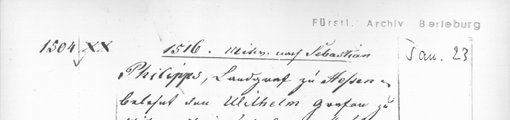 Fürstl. Archiv Berleburg
1504 XX 1516. Mittw. nach Sebastian Jan. 23
Philipps, Landgraf zu Hessen
belehnt den Wilhelm Grafen zu